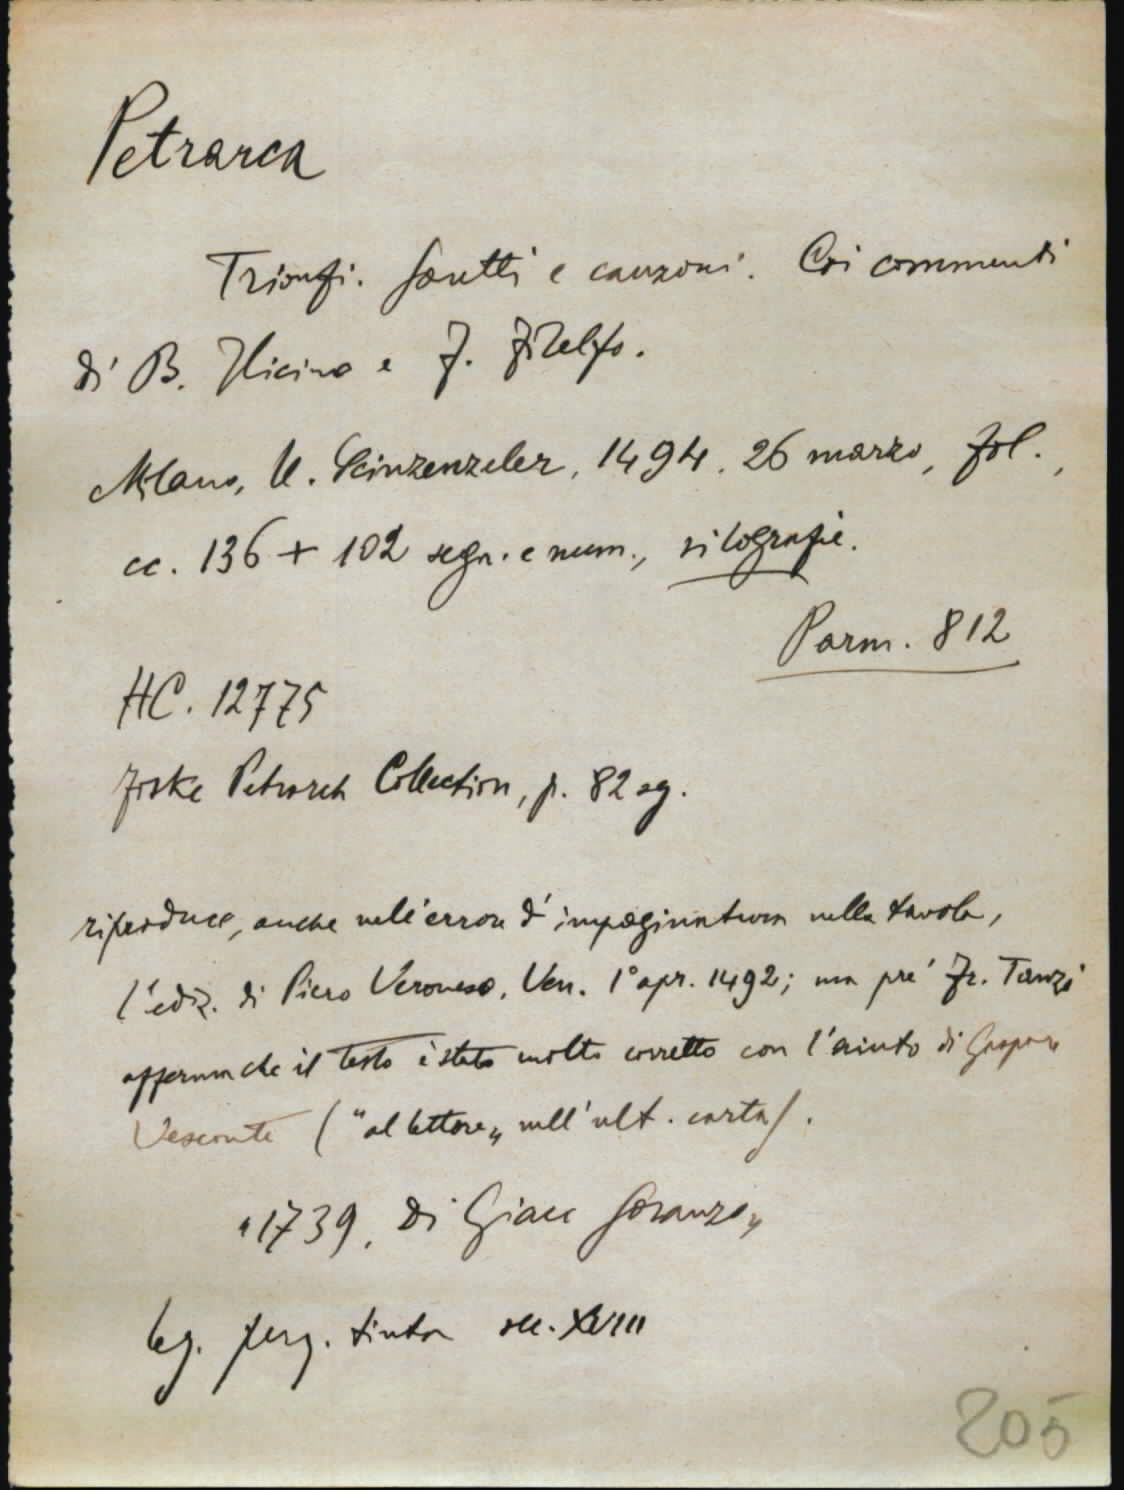 Petrarca
Trionfi. Sonetti e canzoni. Coi commenti
di B. Ilicino e F. Filelfo.
Milano, U. Scinzenzeler, 1494. 26 marzo, fol.,
cc. 136 + 102 segn. e num., silografie.
Parm. 812
HC. 12775
Fiske Petrarch Collection, p. 82 sg.
riproduce, anche nell'errore d'impaginatura nella tavola,
l'ediz. di Piero Veronese, Ven. 1° apr. 1492; ma pre' Fr. Tanzi
afferma che il testo è stato molto corretto con l'aiuto di Gaspare
Vesconte ("al lettore„ nell'ult. carta).
"1739. Di Giac Soranzo„
leg. perg. tinta sec. XVIII
205